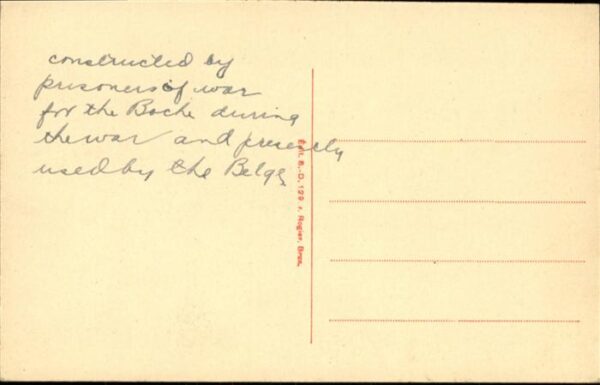 constructed by
prisoners of war
for the Boche during
the war and presently
used by the Belge
Edit. B.-D. 129 r. Rogier, Brux.